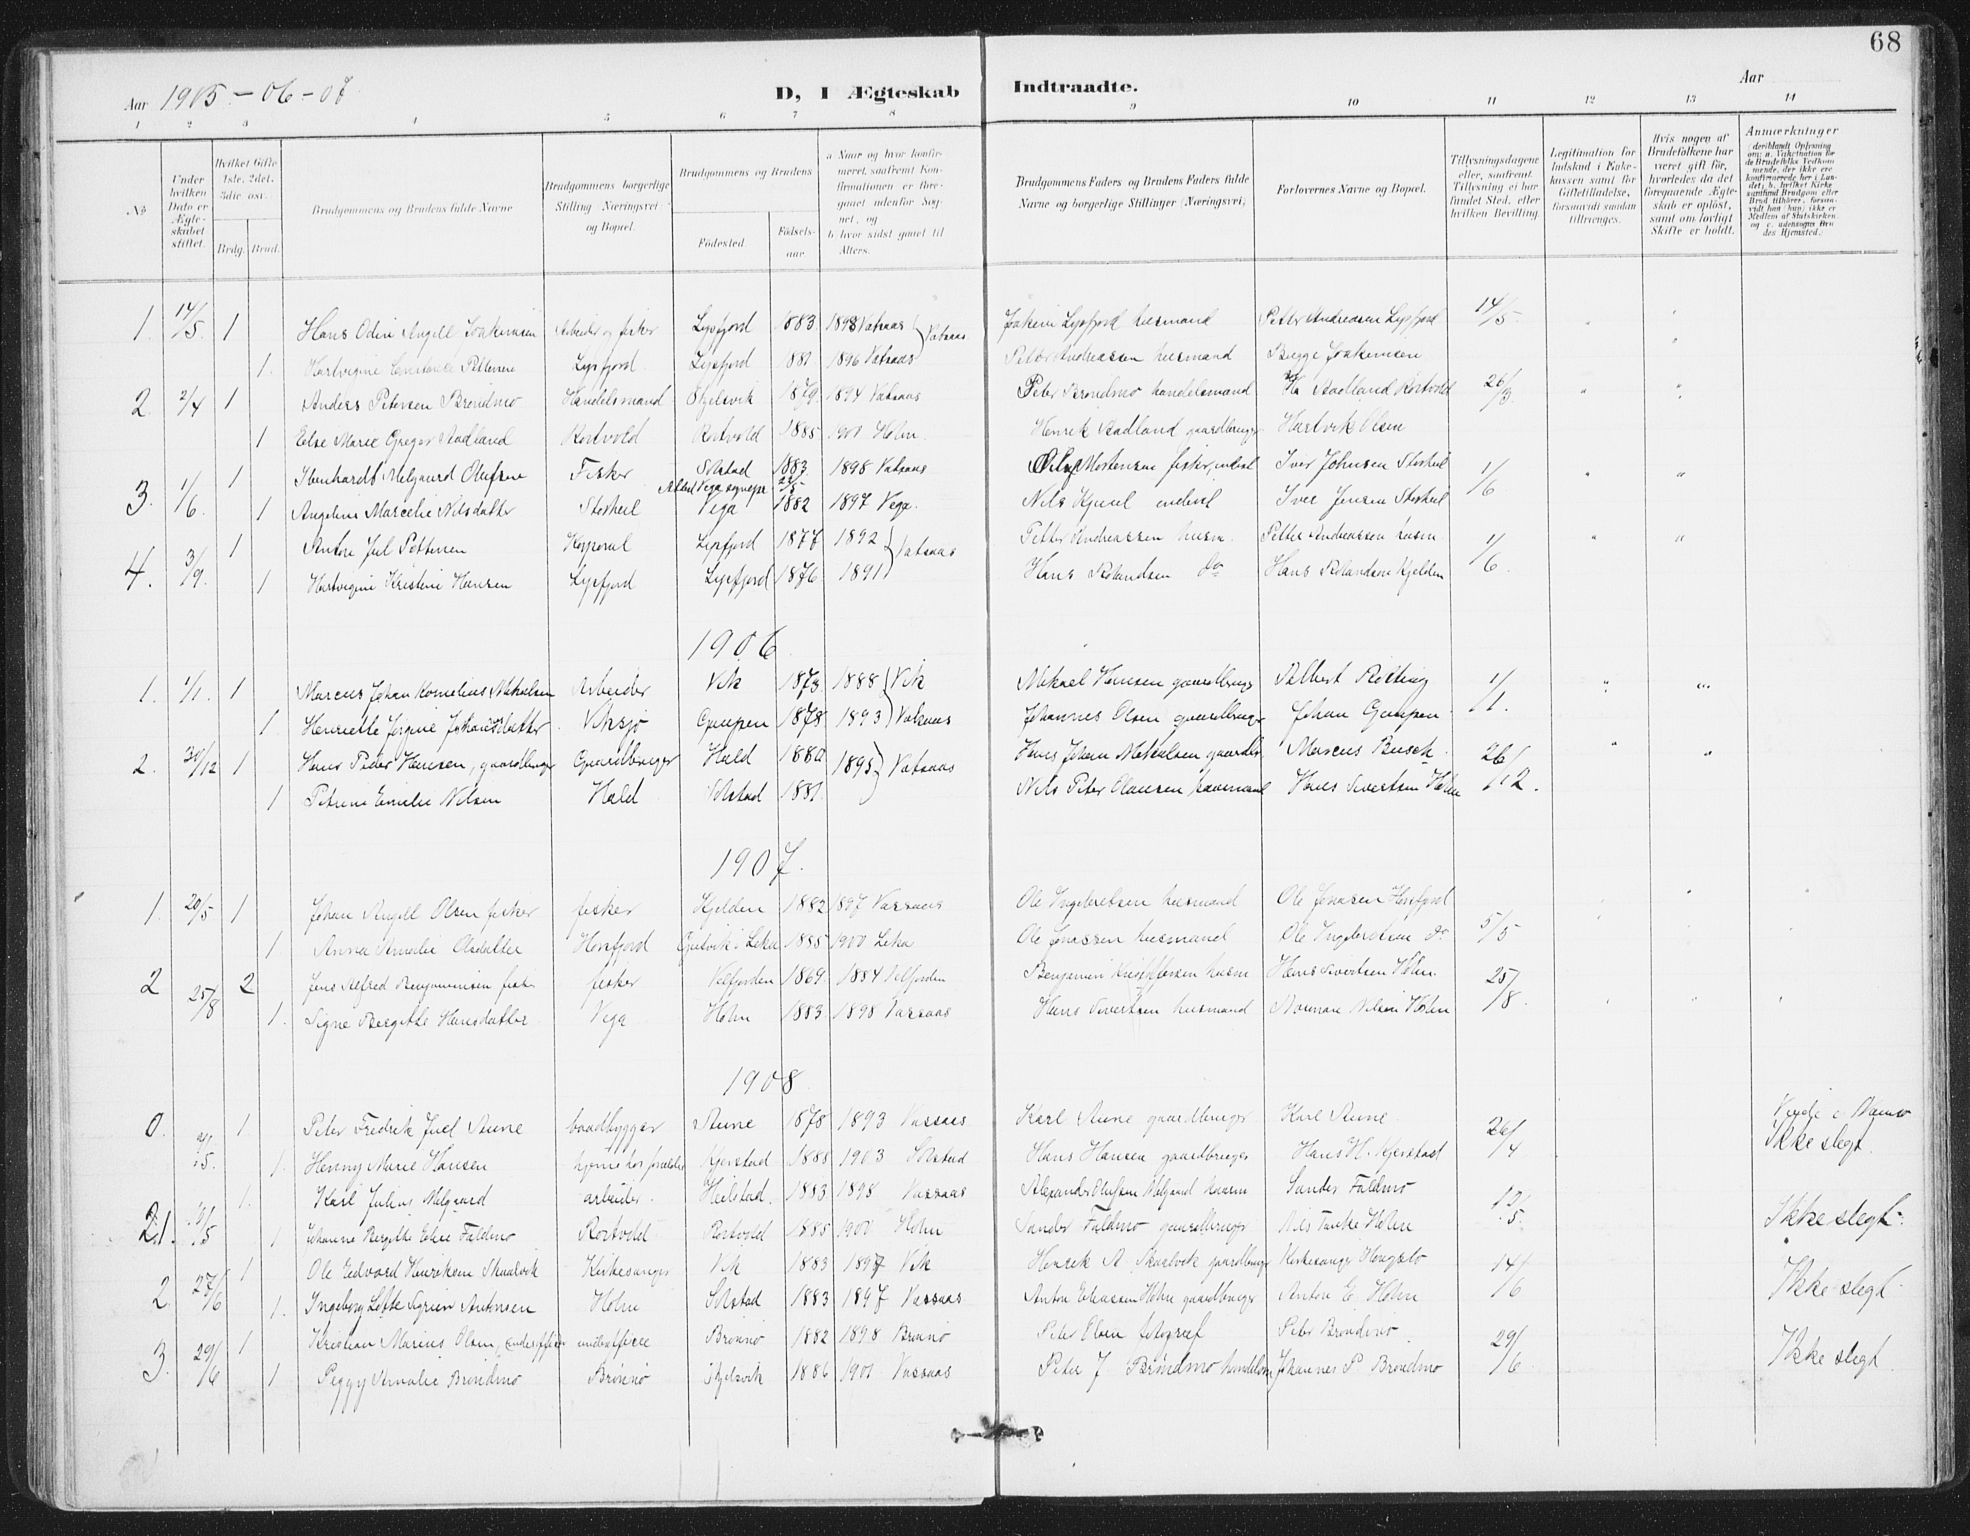 68
Aar 1905 - 06 - 07
D, I Ægteskab Indtraadte.
Aar
1 2 3 4 5 6 7 8 9 10 11 12 13 14
No
Under hvilken Dato er Ægteskabet stiftet.
Hvilket Gifte 1ste, 2det, 3die osv.
Brdg. Brud.
Brudgommens og Brudens fulde Navne
Brudgommens borgerlige Stilling (Næringsvei) og Bopæl.
Brudgommens og Brudens
Födested.
Födsels-aar.
a Naar og hvor konfirmeret, saafremt Konfirmationen er foregaaet udenfor Sognet, og b hvor sidst gaaet til Alters.
Brudgommens Faders og Brudens Faders fulde Navne og borgerlige Stillinger (Næringsvei)
Forlovernes Navne og Bopæl.
Tillysningsdagene eller, saafremt Tillysning ei har fundet Sted, efter hvilken Bevilling.
Legitimation for Indskud i Enkekassen samt for Giftetilladelse, forsaavidt saadan tiltrænges.
Hvis nogen af Brudefolkene har været gift för, hvorledes da det foregaaende Ægteskab er oplöst, samt om lovligt Skifte er holdt.
Anmærkninger
1. 14/5. 1 Hans Odin Angell Joakimsen Arbeider og fisker Lysfjord 1883 1898 Vatsaas Joakim Lysfjord husmand Petter Andreasen Lysfjord 14/5.
1. Hartvigine Petersen Lysfjord. Lysfjord 1881 1896 Vatsaas Vatsaas Petter Andreassen husmand Bugge Joakimsen
2 2/4 1 Anders Petersen Bröndmo Handelsmand Skjelsvik 1879. 1894 Vatsaas Peter Bröndmo handelsmand H. Aadland Rortvold 26/3.
1 Else Marie Greger Aadland Rortvold Rortvold 1885 1901 Holm. Henrik Aadland gaardbruger Hartvik Olsen
3. 1/6. 1 Ibenhardt Melgaard Olufsen Fisker Solstad 1883 1898 Vatsaas Oluf Mortensen fisker, inderst Iver Johnsen Storheil 1/6
1 Angeline Marcelie Nilsdatter Storheil Vega 1882 1897 Vega. Nils Kjul inderst Iver Jensen Storheil
4. 3/9. 1 Anton Jul Pettersen Korporal Lysfjord 1877 1892 Vatsaas Petter Andreassen husm. Petter Andreassen husm. 1/6.
1 Hartvigine Kristine Hansen Lysfjord Lysfjord 1876 1891 Hans Rolandsen do Hans Rolandsen Kjelden
1906
1. 1/1. 1 Marcus Johan Kornelius Mikalsen Arbeider Vik 1873 1888 Vik Mikael Hansen gaardbruger Albert Rotting 1/1.
1 Henriette Jörgine Johansdatter Viksjö Gaupen 1878 1893 Vatsaas Johannes Olsen gaardbruger Johan Gaupen
2. 30/12 1 Hans Peder Hansen, gaardbruger Gaardbruger Hald 1880 1895 Vatsaas Hans Johan Mikalsen gaardbr. Marcus Busch. 26/12.
1 Petrine Emelie Nilsen Hald Solstad 1881. Nils Peter Olausen husmand Hans Sivertsen Holm
1907.
1. 20/5 1 Johan Angell Olsen fisker fisker Kjelden 1882 1897 Vassaas Ole Ingebretsen husmand Ole Jonasen Horsfjord 5/5
1. Anna Amalie Olsdatter Horsfjord i Leka 1885 1900 Leka Ole Jonassen husmand Ole Ingebretsen do
2 25/8 2 Jens Alfred Benjaminsen fisker fisker Velfjorden 1869. 1884 Velfjorden Benjamin Kristoffersen husm Hans Sivertsen Holm. 25/8
1. Signe Bergitte Hansdatter Vega Holm 1883 1898 Vassaas Hans Sivertsen husmand Normann Nilsen Holm
1908
0. 1. Peter Fredrik Juel Aune baadbygger Aune 1878 1893 Vassaas Karl Aune gaardbruger Karl Aune. 26/4
1. Henny Marie Hansen hjemme hos forældre Kjerstad 1888 1903 Solstad Hans Hansen gaardbruger Hans H. Kjerstad Ikke slegt
21. 31/5 1. Karl Julius Melgaard arbeider. Heilstad. 1883 1898 Vassaas Alexander Olufsen Melgaard husm Sander Faldmo
1 Johanne Bergitte Eline Faldmo Rortvold Rortvold 1885 1900 Holm Sander Faldmo gaardbruger Nils Tanke Holm Ikke slegt.
2. 27/6 1 Ole Edvard Henriksen Skaalvik Kirkesanger Vik 1883 1897 Vik Henrik A Skaalvik gaardbruger Kirkesanger 14/6 Ikke slegt
1. Ingeborg Lofte Sigrun Antonsen Holm Solstad 1883 1897 Vassaas Anton Eliassen Holm gaardbruger Anton E. Holm
3. 29/6 1 Kristian Marius Olsen, underofficer underofficer Brönnö 1882 1898 Brönnö Peter Olsen fotograf Peter Bröndmo 29/6 Ikke slegt.
1 Peggy Amalie Bröndmo Brönnö Skjelsvik 1886 1901 Vassaas Peter J Bröndmo handelsm Johannes P Bröndmo